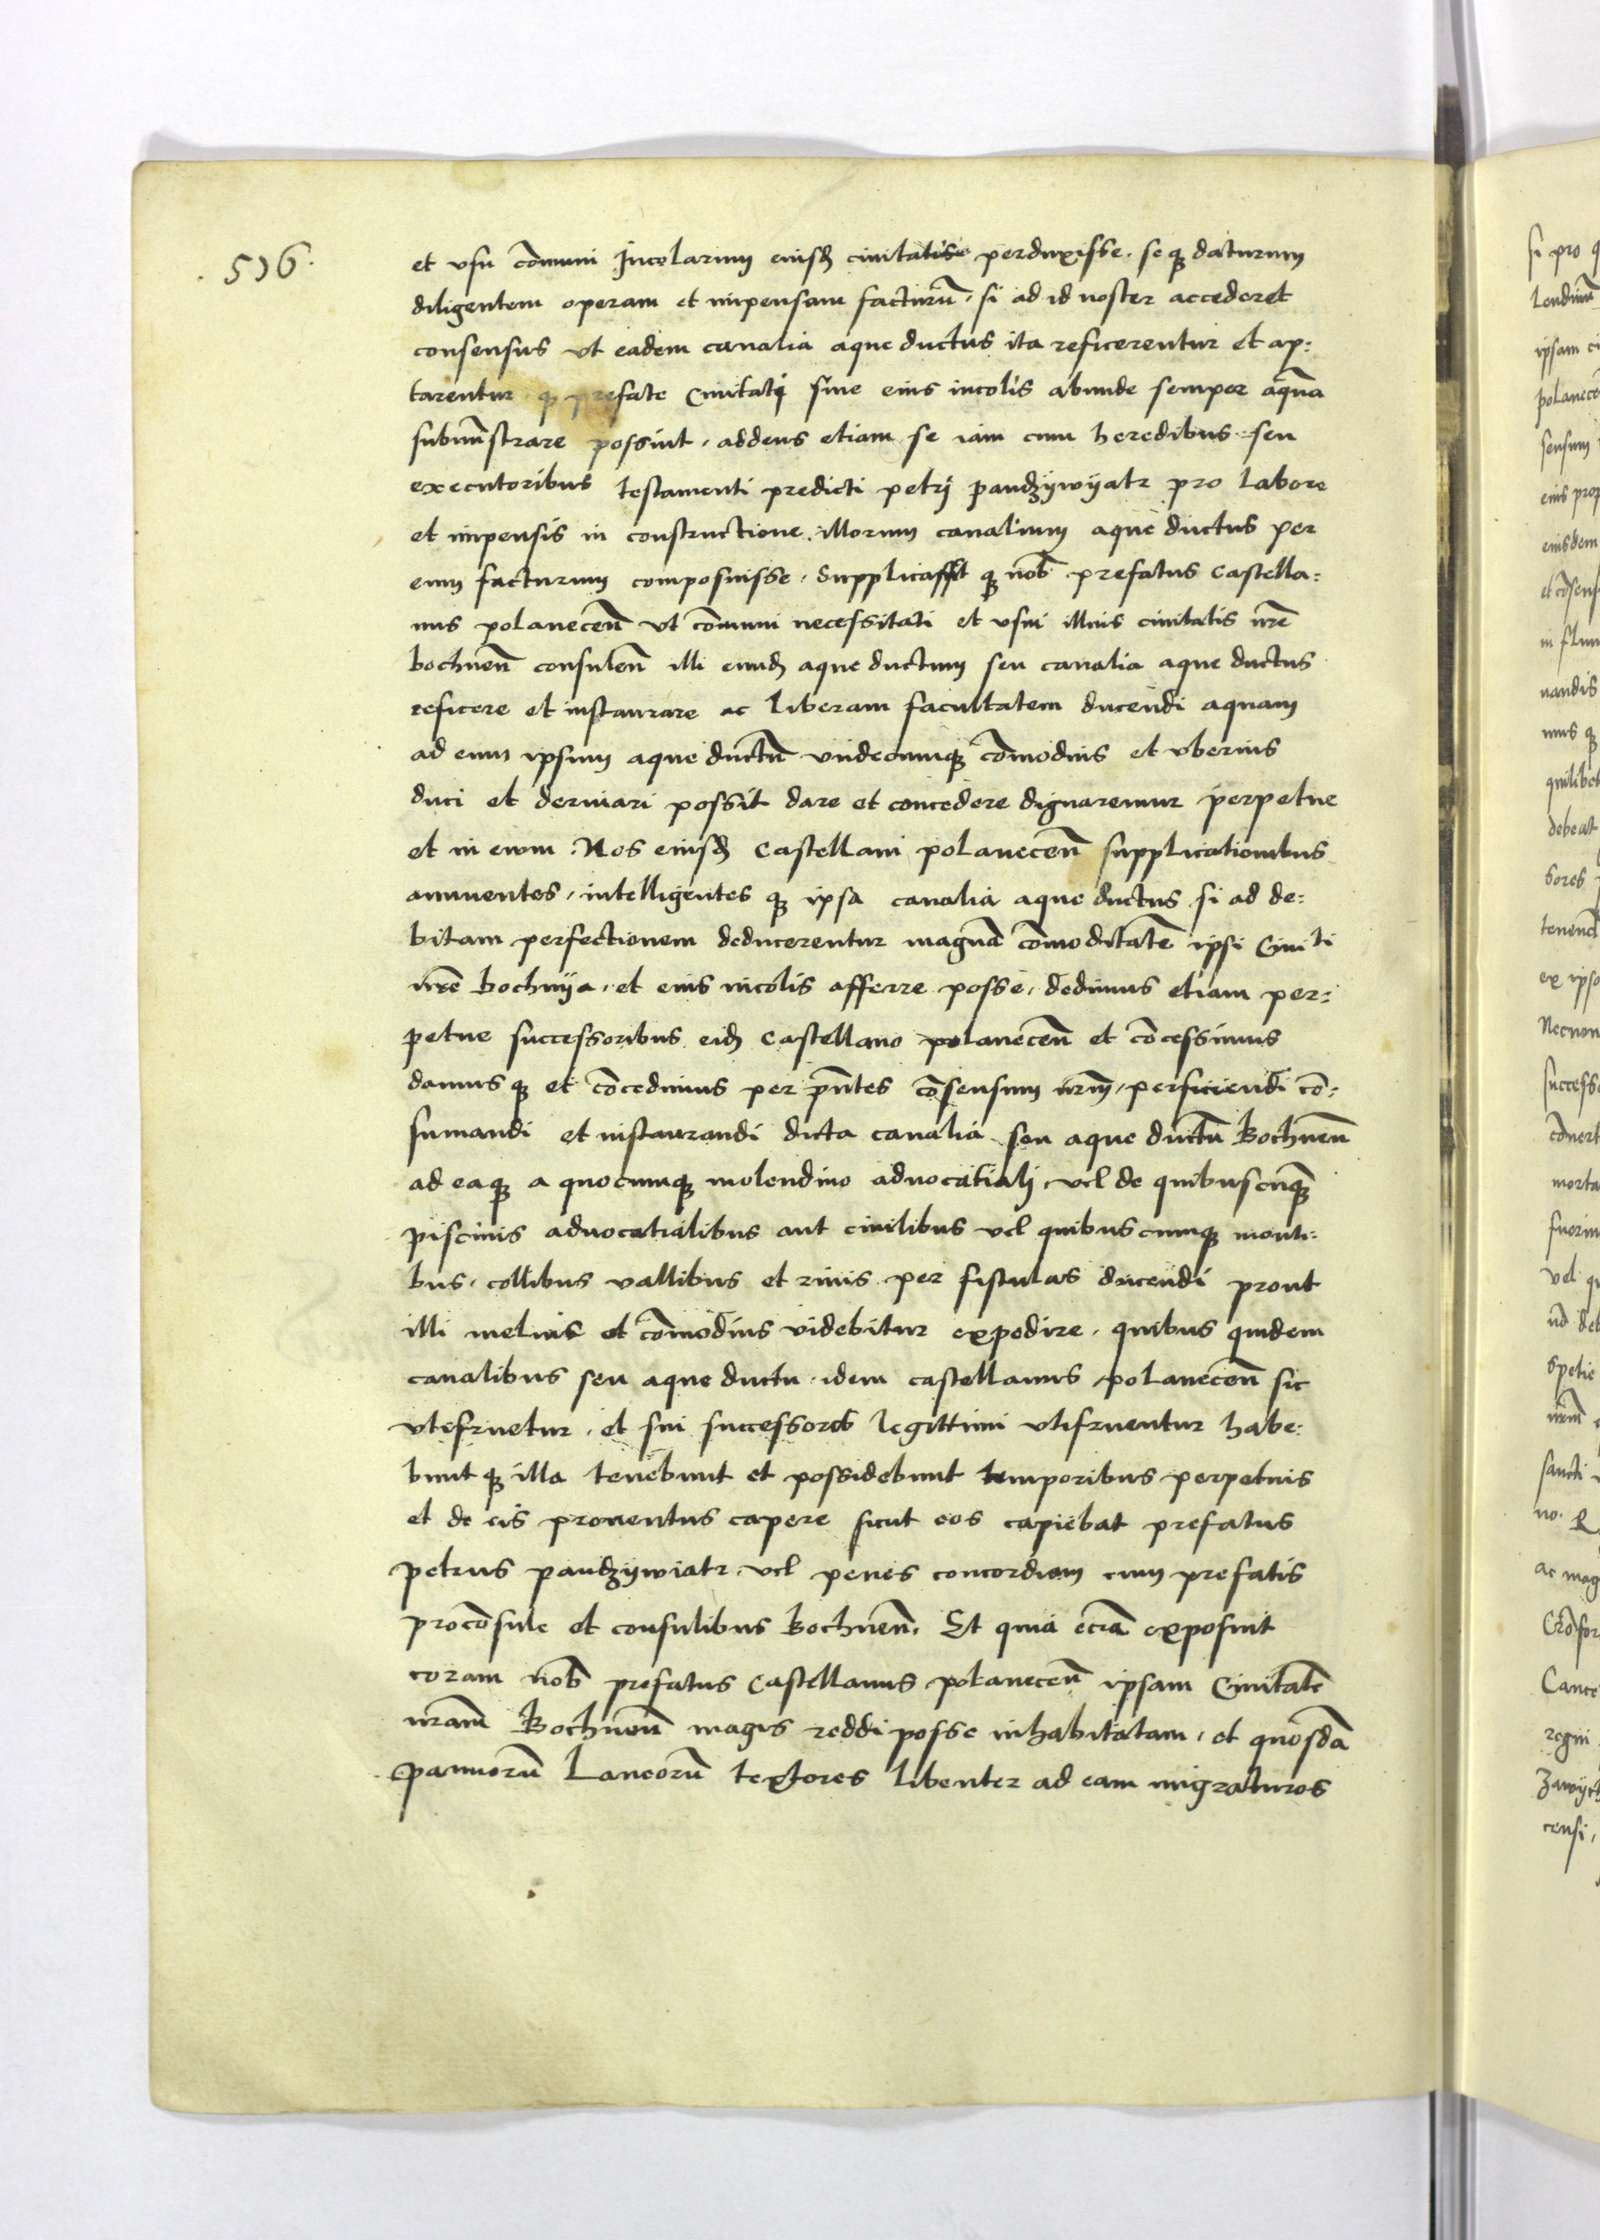 . 516 .
et vsu cōmuni Incolarum eiusꝺ ciuitatis perduxisse. se qꝫ daturum
diligentem operam et impensam facturū, si ad id noster accederet
consensus vt eadem canalia aque ductus ita reficerentur et ap:
tarentur qꝫ prefate Ciuitati siue eius incolis abunde semper aq̄ua
submīstrare possint, addens etiam se iam cum heredibus seu
executoribus testamenti predicti petrÿ pandzÿwÿatr pro labore
et impensis in constructione illorum canalium aque ductus per
eum facturum composuisse, Supplicassꝫt qꝫ nob̄ prefatus Castella:
nus polanecen̄ vt cōmuni necessitati et vsui illius ciuitatis nr̄e
bochnen̄ consulen̄ illi eundꝫ aque ductum seu canalia aque ductus
reficere et instaurare ac liberam facultatem ducendi aquam
ad eum ipsum aque ductū vndecumqꝫ cōmodius et vberius
duci et deriuari possit dare et concedere dignaremur perpetue
et in ewm. Nos eiusꝺ Castellani polanecen̄ supplicationibus
annuentes, intelligentes qꝫ ipsa canalia aque ductus si ad de:
bitam perfectionem deducerentur magnā cōmoditatē ipsi Ciuiti
nr̄e bochnÿa, et eius incolis afferre posse, dedimus etiam per:
petue successoribus eidꝫ Castellano polanecen̄ et cōcessimus
damus qꝫ et cōcedimus per pn̄tes cōsensum nr̄m, perficiendi cō:
sumandi et instaurandi dicta canalia seu aque ductū Bochnen̄
ad eaqꝫ a quocumqꝫ molendino aduocatialj, vel de quibuscūqꝫ
piscinis aduocatialibus aut ciuilibus vel quibuscumqꝫ monti:
bus, collibus vallibus et riuis per fistulas ducendi prout
illi melius et cōmodius videbitur expedire, quibus quidem
canalibus seu aque ductu, idem castellanus polanecen̄ sic
vtefruetur, et sui successores legittimi vtifruentur habe:
bunt qꝫ illa tenebunt et possidebunt temporibus perpetuis
et de eis prouentus capere sicut eos capiebat prefatus
petrus pandzÿwiatr, vel penes concordiam cum prefatis
procōsule et consulibus Bochnen̄. Et quia eciā exposuit
coram nob̄ prefatus Castellanus polanecen̄ ipsam Ciuitatē
nr̄am Bochnen̄ magis reddi posse inhabitatam, et quosdā
pannorū laneorū textores libenter ad eam migraturos